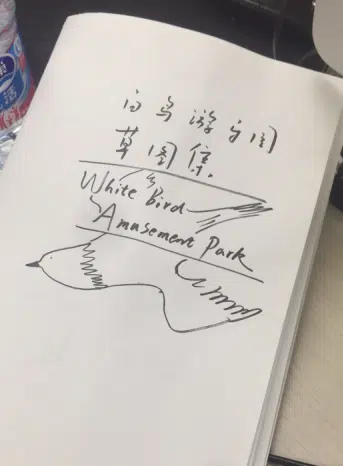 白鸟游乐园
草图集.
White Bird
Amusement Park